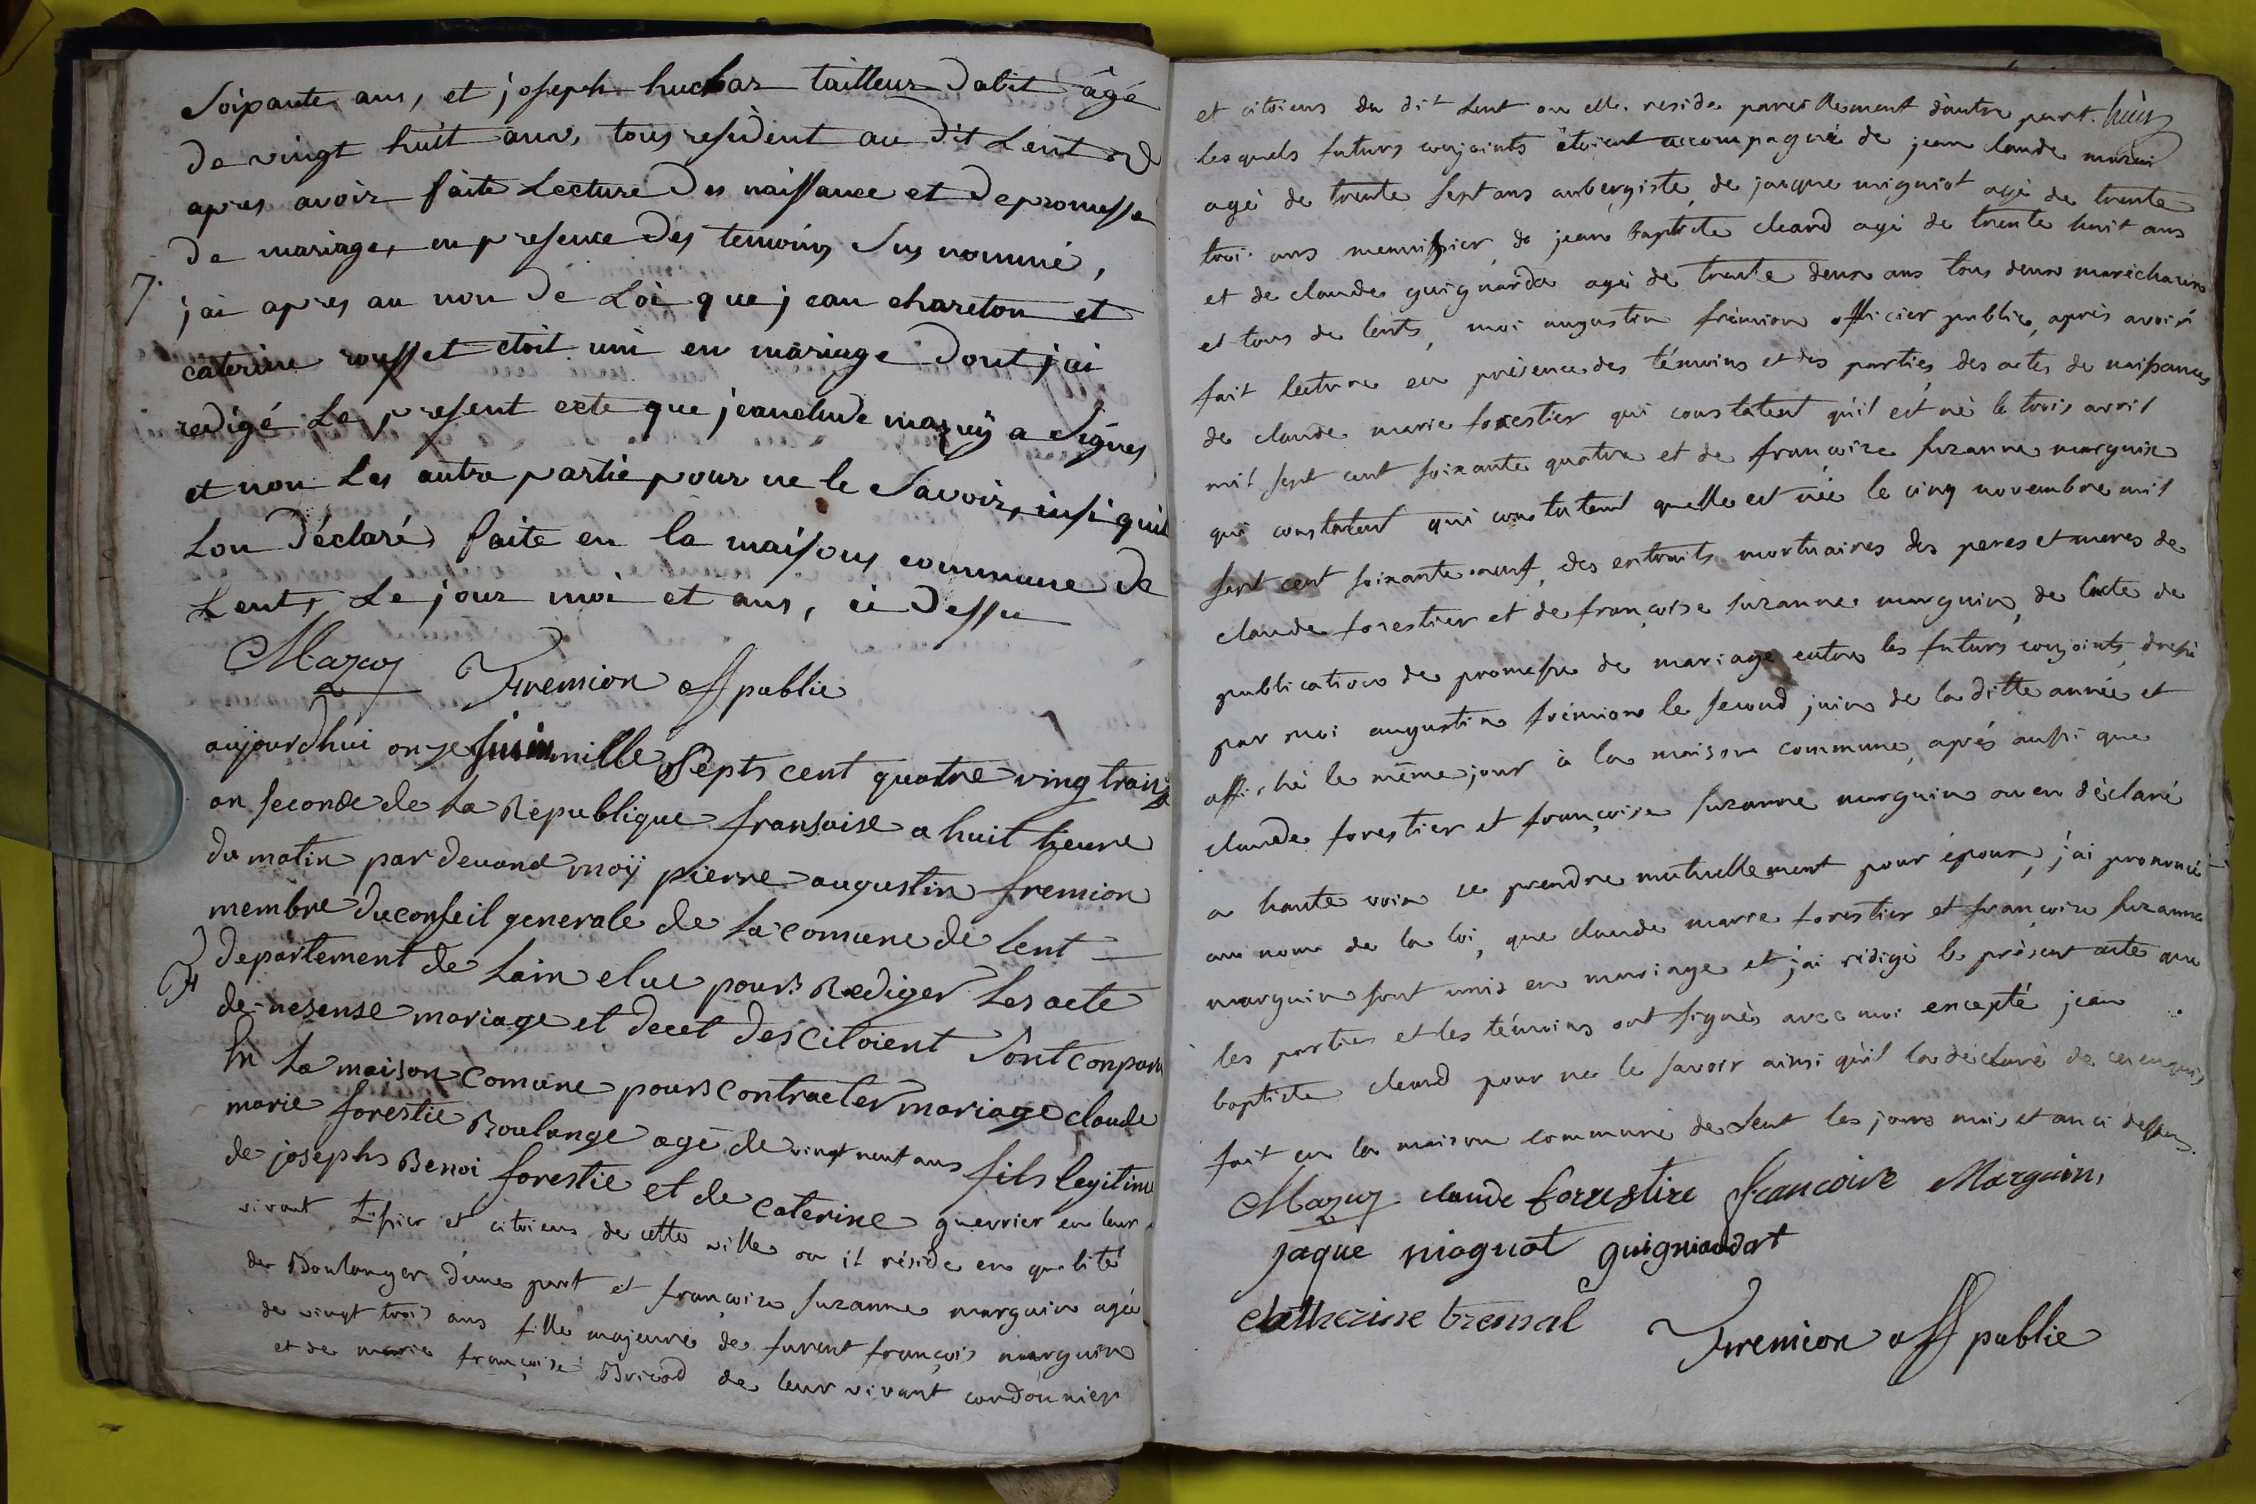 Soixante ans, et joseph huchar tailleur dabit âgé
de vingt huit ans, tous resident au dit Lent
apres avoir faite Lecture des naissance et de promesse
de mariage, en presence des temoins sus nommé,
7.
jai apres au non de Loi que jean chareton et
caterine rousset etoit uni en mariage dont jai
redigé Le present acte que jeanclaude mazuÿ a Signes
et non Les autre partie pour ne le Savoir, insi quil
Lon déclaré faite en la maisons commune de
Lent, Le jour moi et ans, ci dessu
Mazuy Fremion off public
aujourdhui onze juin mille Septs cent quatre ving trois
an seconde de La Republique fransaise a huit heure
du matin par devand moÿ pierre augustin fremion
membre du conseil generale de La comune de Lent
departement de Lain elue pours Rediger Les acte
de nesense mariage et decet des citoient Sont conparu
En La maison comune pours contracter mariage claude
marie forestie Boulange age de vingt neuf ans fils legitime
de josephs Benoi forestie et de caterine guerrier en leur
vivant tissier et citoiens de cette ville ou il réside en qualité
de Boulanger d'une part et françoise suzanne marguin agée
de vingt trois ans fille majeure de furent françois marguin
et de marie françoise Bricod de leur vivant cordonnier
et citoiens du dit Lent ou elle reside pareillement d'autre part.
lesquels futurs conjoints étoient accompagné de jean laude mazui
agé de trente sept ans aubergiste, de jacque migniot agé de trente
troi ans menuisier de jean baptiste cleard agé de trente huit ans
et de claude guignarda agé de trente deux ans tous deux maréchaux
et tous de lents, moi augustin frémion officier public, après avoir
fait lecture en présence des témoins et des parties, des actes de naissances
de claude marie forestier qui constatent qu'il est né le trois avril
mil sept cent soixante quatre et de françoise suzanne marguin
qui constatent qui constatent quelle est née le cinq novembre mil
sept cent soixante neuf, des extraits mortuaires des peres et meres de
claude forestier et de françoise suzanne marguin, de lacte de
publication de promesse de mariage entre les futurs conjoints, dressé
par moi augustin frémion le second juin de la ditte année et
affiché le même jour à la maison commune, après aussi que
claude forestier et françoise suzanne marguin ou en déclaré
a haute voix se prendre mutuellement pour époux, j'ai prononcé
au nom de la loi, que claude marie forestier et françoise suzanne
marguin sont unis en mariage et j'ai rédigé le présent acte que
les parties et les témoins ont signés avec moi excepté jean
baptiste cleard pour ne le savoir ainsi qu'il la déclaré de ce enquis
fait en la maison commune de Lent les jours mois et an ci dessus.
Mazuy claude forrestire francoise Marguin,
jaque miognot guigniaudat
Catherine bremal
Fremion off public